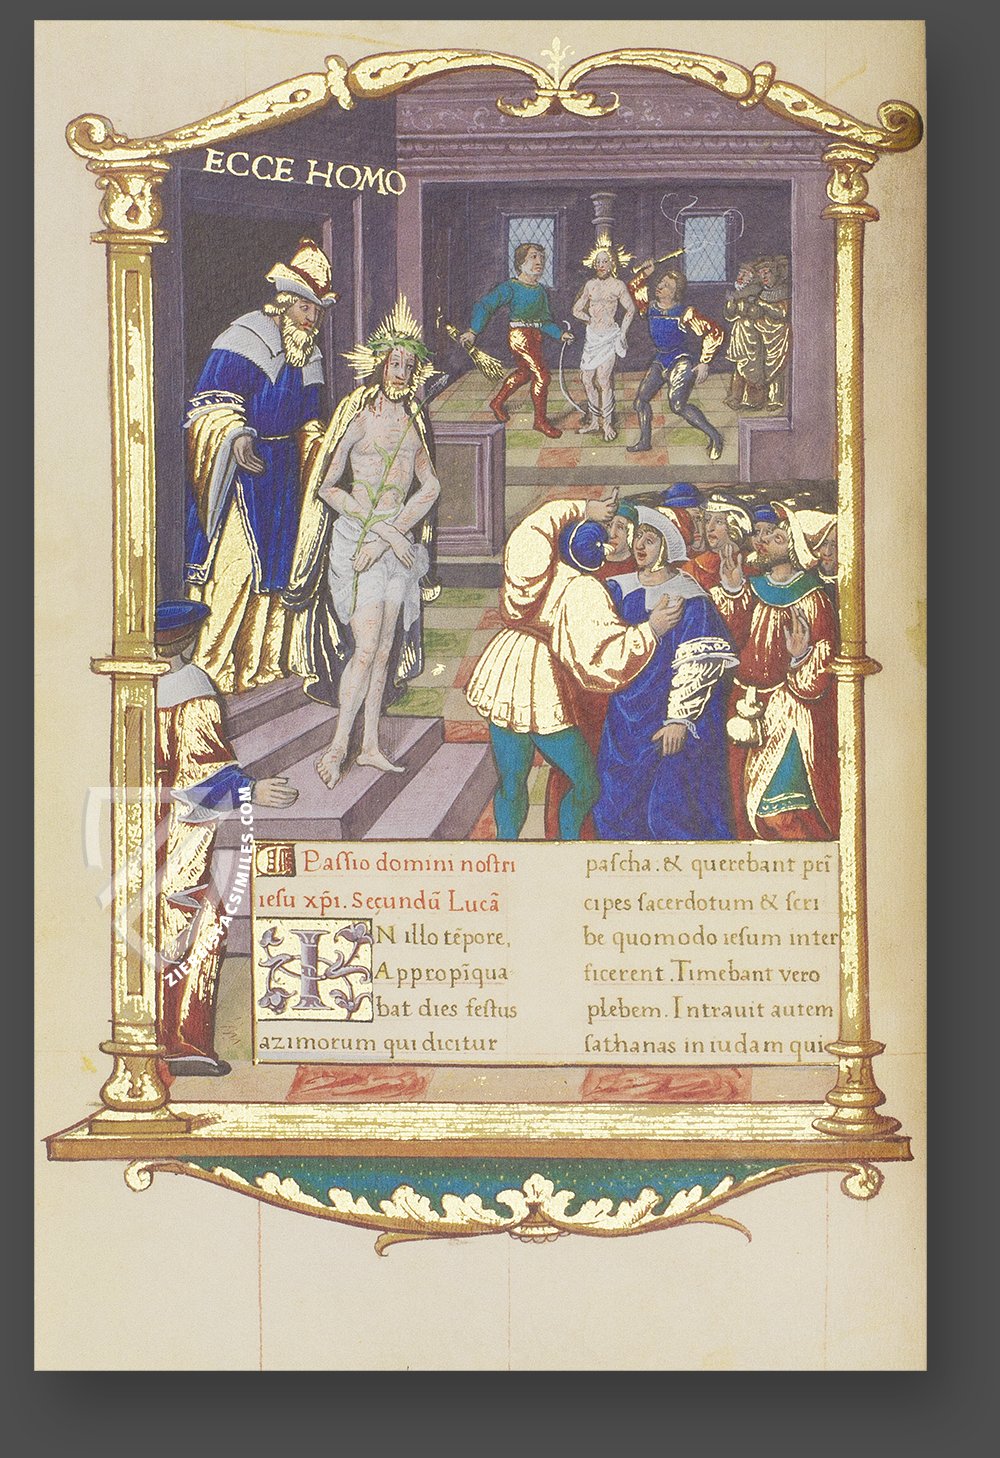 ECCE HOMO
Passio domini nostri
iesu xp̄i. Secundū Lucā
IN illo tēpore,
Appropīqua
bat dies festus
azimorum qui dicitur
pascha. & querebant prī
cipes sacerdotum & scri
be quomodo iesum inter
ficerent. Timebant vero
plebem. Intrauit autem
sathanas in iudam qui
ZIEREISFACSIMILES.COM